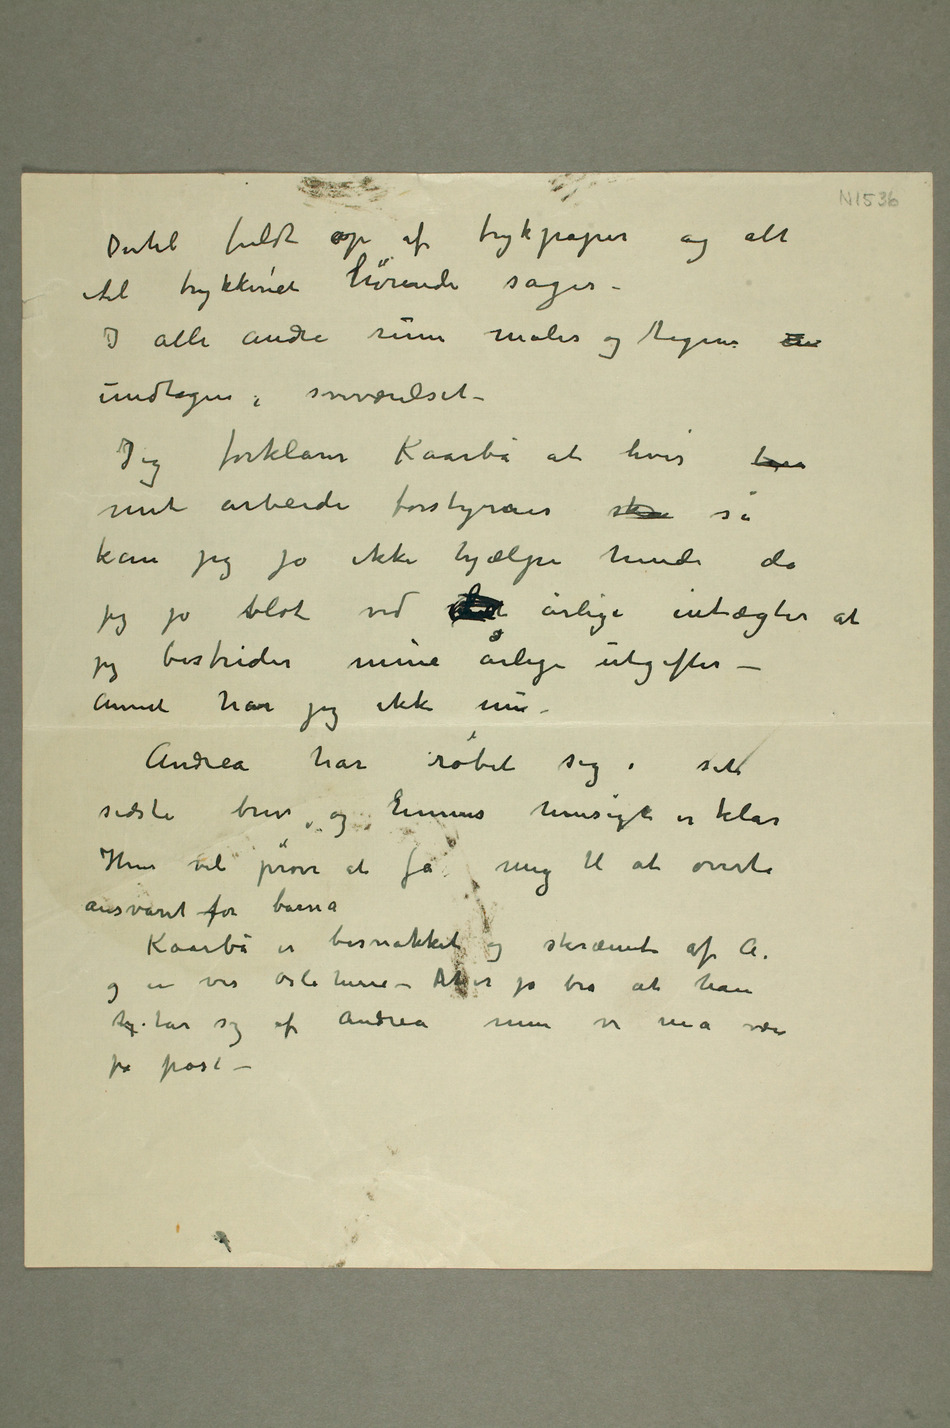 N1536
Dertil fuldt op af trykpapir og alt
til trykkeriet hörende sager –
I alle andre rum maler og tegner
undtagen i soveværelset –
Jeg forklarer Kaarbö at hvis
mit arbeide forstyrres så
kan jeg jo ikke hjælpe hende da
jeg jo blot ved årlige intægter at
jeg bestrider mine årlige utgifter –
Annet har jeg ikke nu –
Andrea har röbet sig i sit
sidste brev og hennes hensigt er klar
Hun vil pröve at få mig til at overta
ansvaret for barna
Kaarbö er besnakket og skræmt af A.
og en ves Oslo herre – Det er jo bra at han
tar sig af Andrea men vi må være
på post –